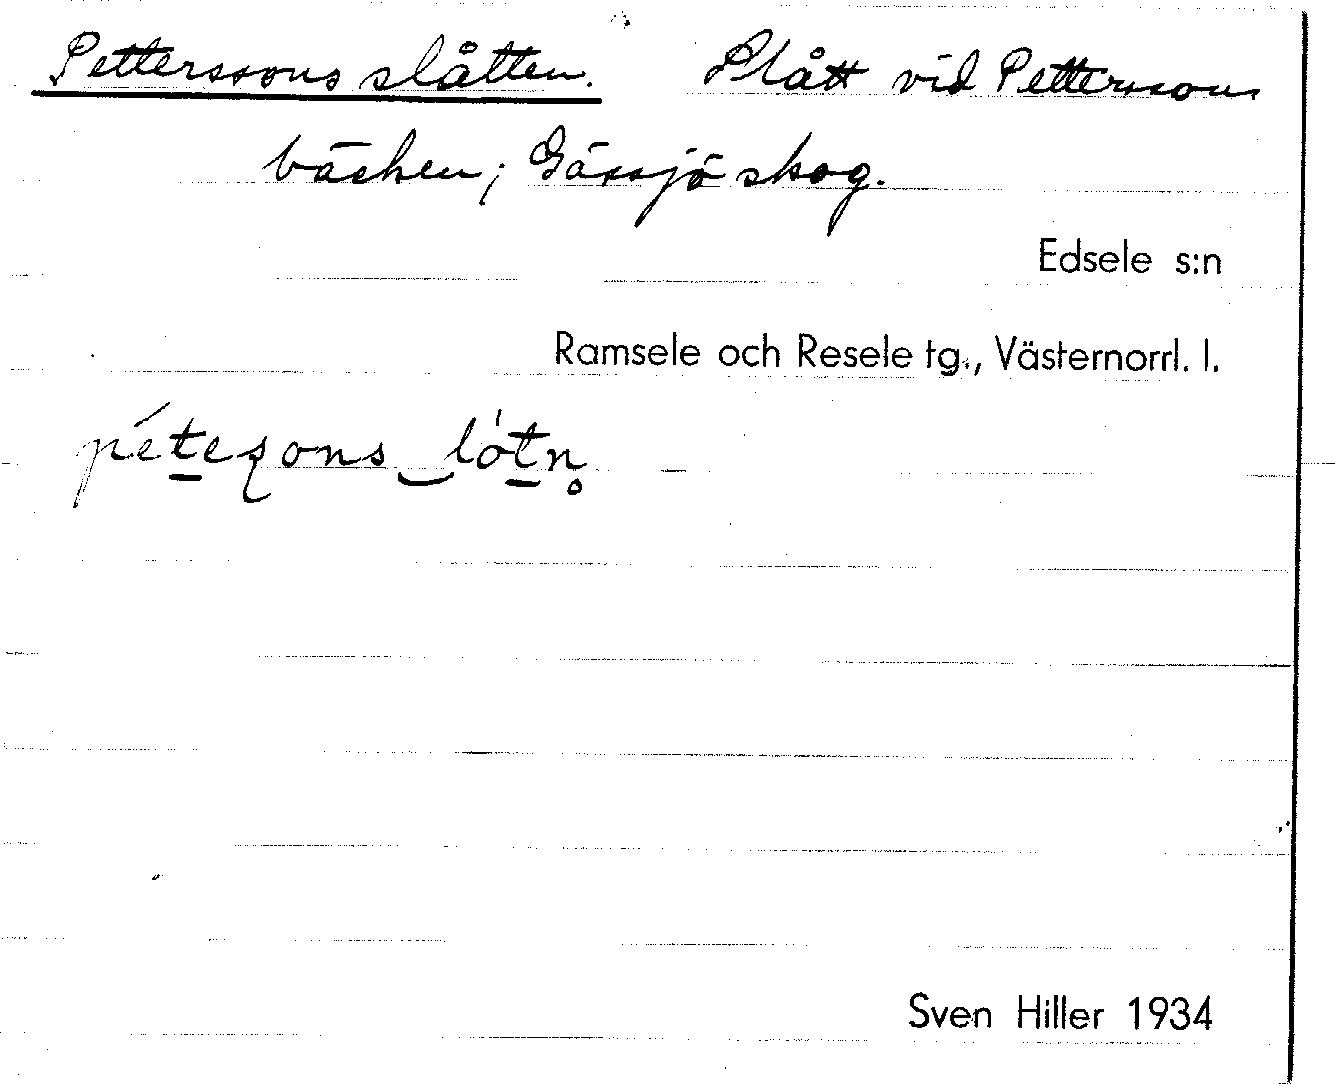 Petterssons slåtten. Slått vid Petterssons
bäcken; Gåssjö skog.
Edsele s:n
Ramsele och Resele tg., Västernorrl. l.
Sven Hiller 1934